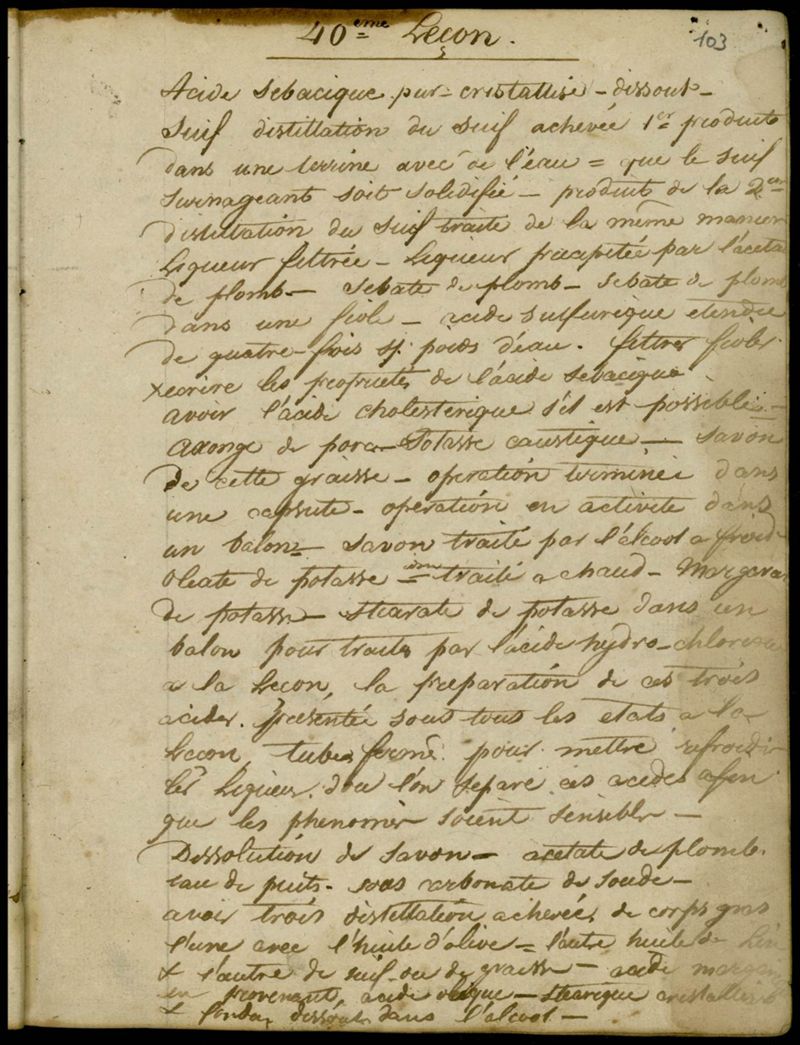 40ème Leçon.
103
Acide Sebacique pur cristallisé - dissout -
Suif distillation du Suif achevée 1er produits
dans une terrine avec de l'eau = que le Suif
Surnageant soit Solidifié - produits de la 2eme
distillation du Suif traité de la même manier
Liqueur filtrée - Liqueur précipitée par l'aceta
de plomb - Sebate de plomb - Sebate de plomb
dans une fiole - acide Sulfurique etendue
de quatre fois S. poids d'eau. filtrer
ecrire les proprietés de l'acide Sebacique
avoir l'acide cholesterique s'il est possible -
axonge de porc - Potasse caustique - Savon
de cette graisse - operation terminée dans
une capsule - operation en activité dans
un balon - Savon traité par l'alcool a froid
Oleate de potasse traité a chaud - Margara
de potasse - Stearate de potasse dans un
balon pour traiter par l'acide hydro-chloriq
a la Leçon, la preparation de ces trois
acides. presentée sous tous les etats a la
Lecon, tube fermé pour mettre refroidir
les Liqueur d'ou l'on separe ces acides afin
que les phenomèn soient sensible -
Dissolution de Savon - acetate de plomb.
eau de puits - sous carbonate de Soude -
avoir trois distillation achevées de corps gras
l'une avec l'huile d'olive = l'autre huile de Lin
& l'autre de suif ou de graisse - acide margar
en provenant, acide oleique - Stearique cristallisé
& fondu dissout dans l'alcool -